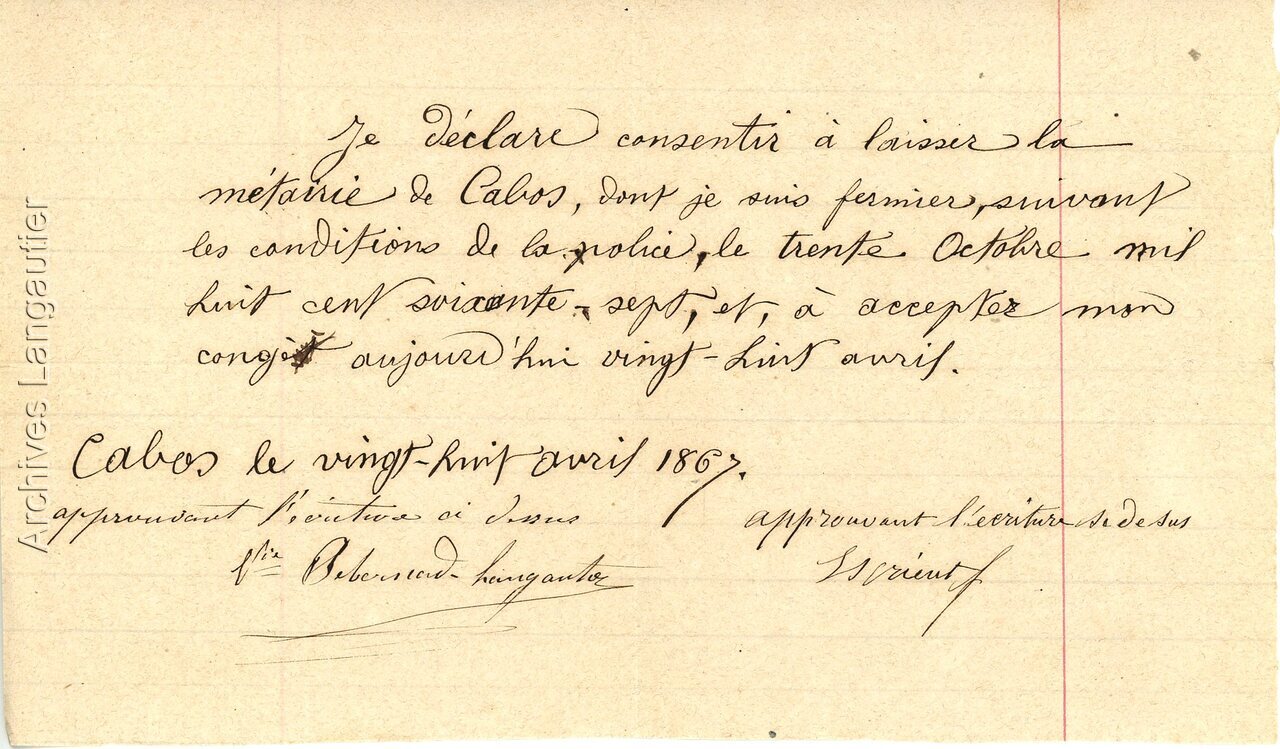 Je déclare consentir à laisser la
métairie de Cabos, dont je suis fermier, suivant
les conditions de la police, le trente Octobre mil
huit cent soixante-sept, et, à accepter mon
congé aujourd'hui vingt-huit avril.
Cabos le vingt-huit avril 1867.
approuvant l'écriture ci dessus
approuvant l'écriture si desus
Langautier
Archives Langautier